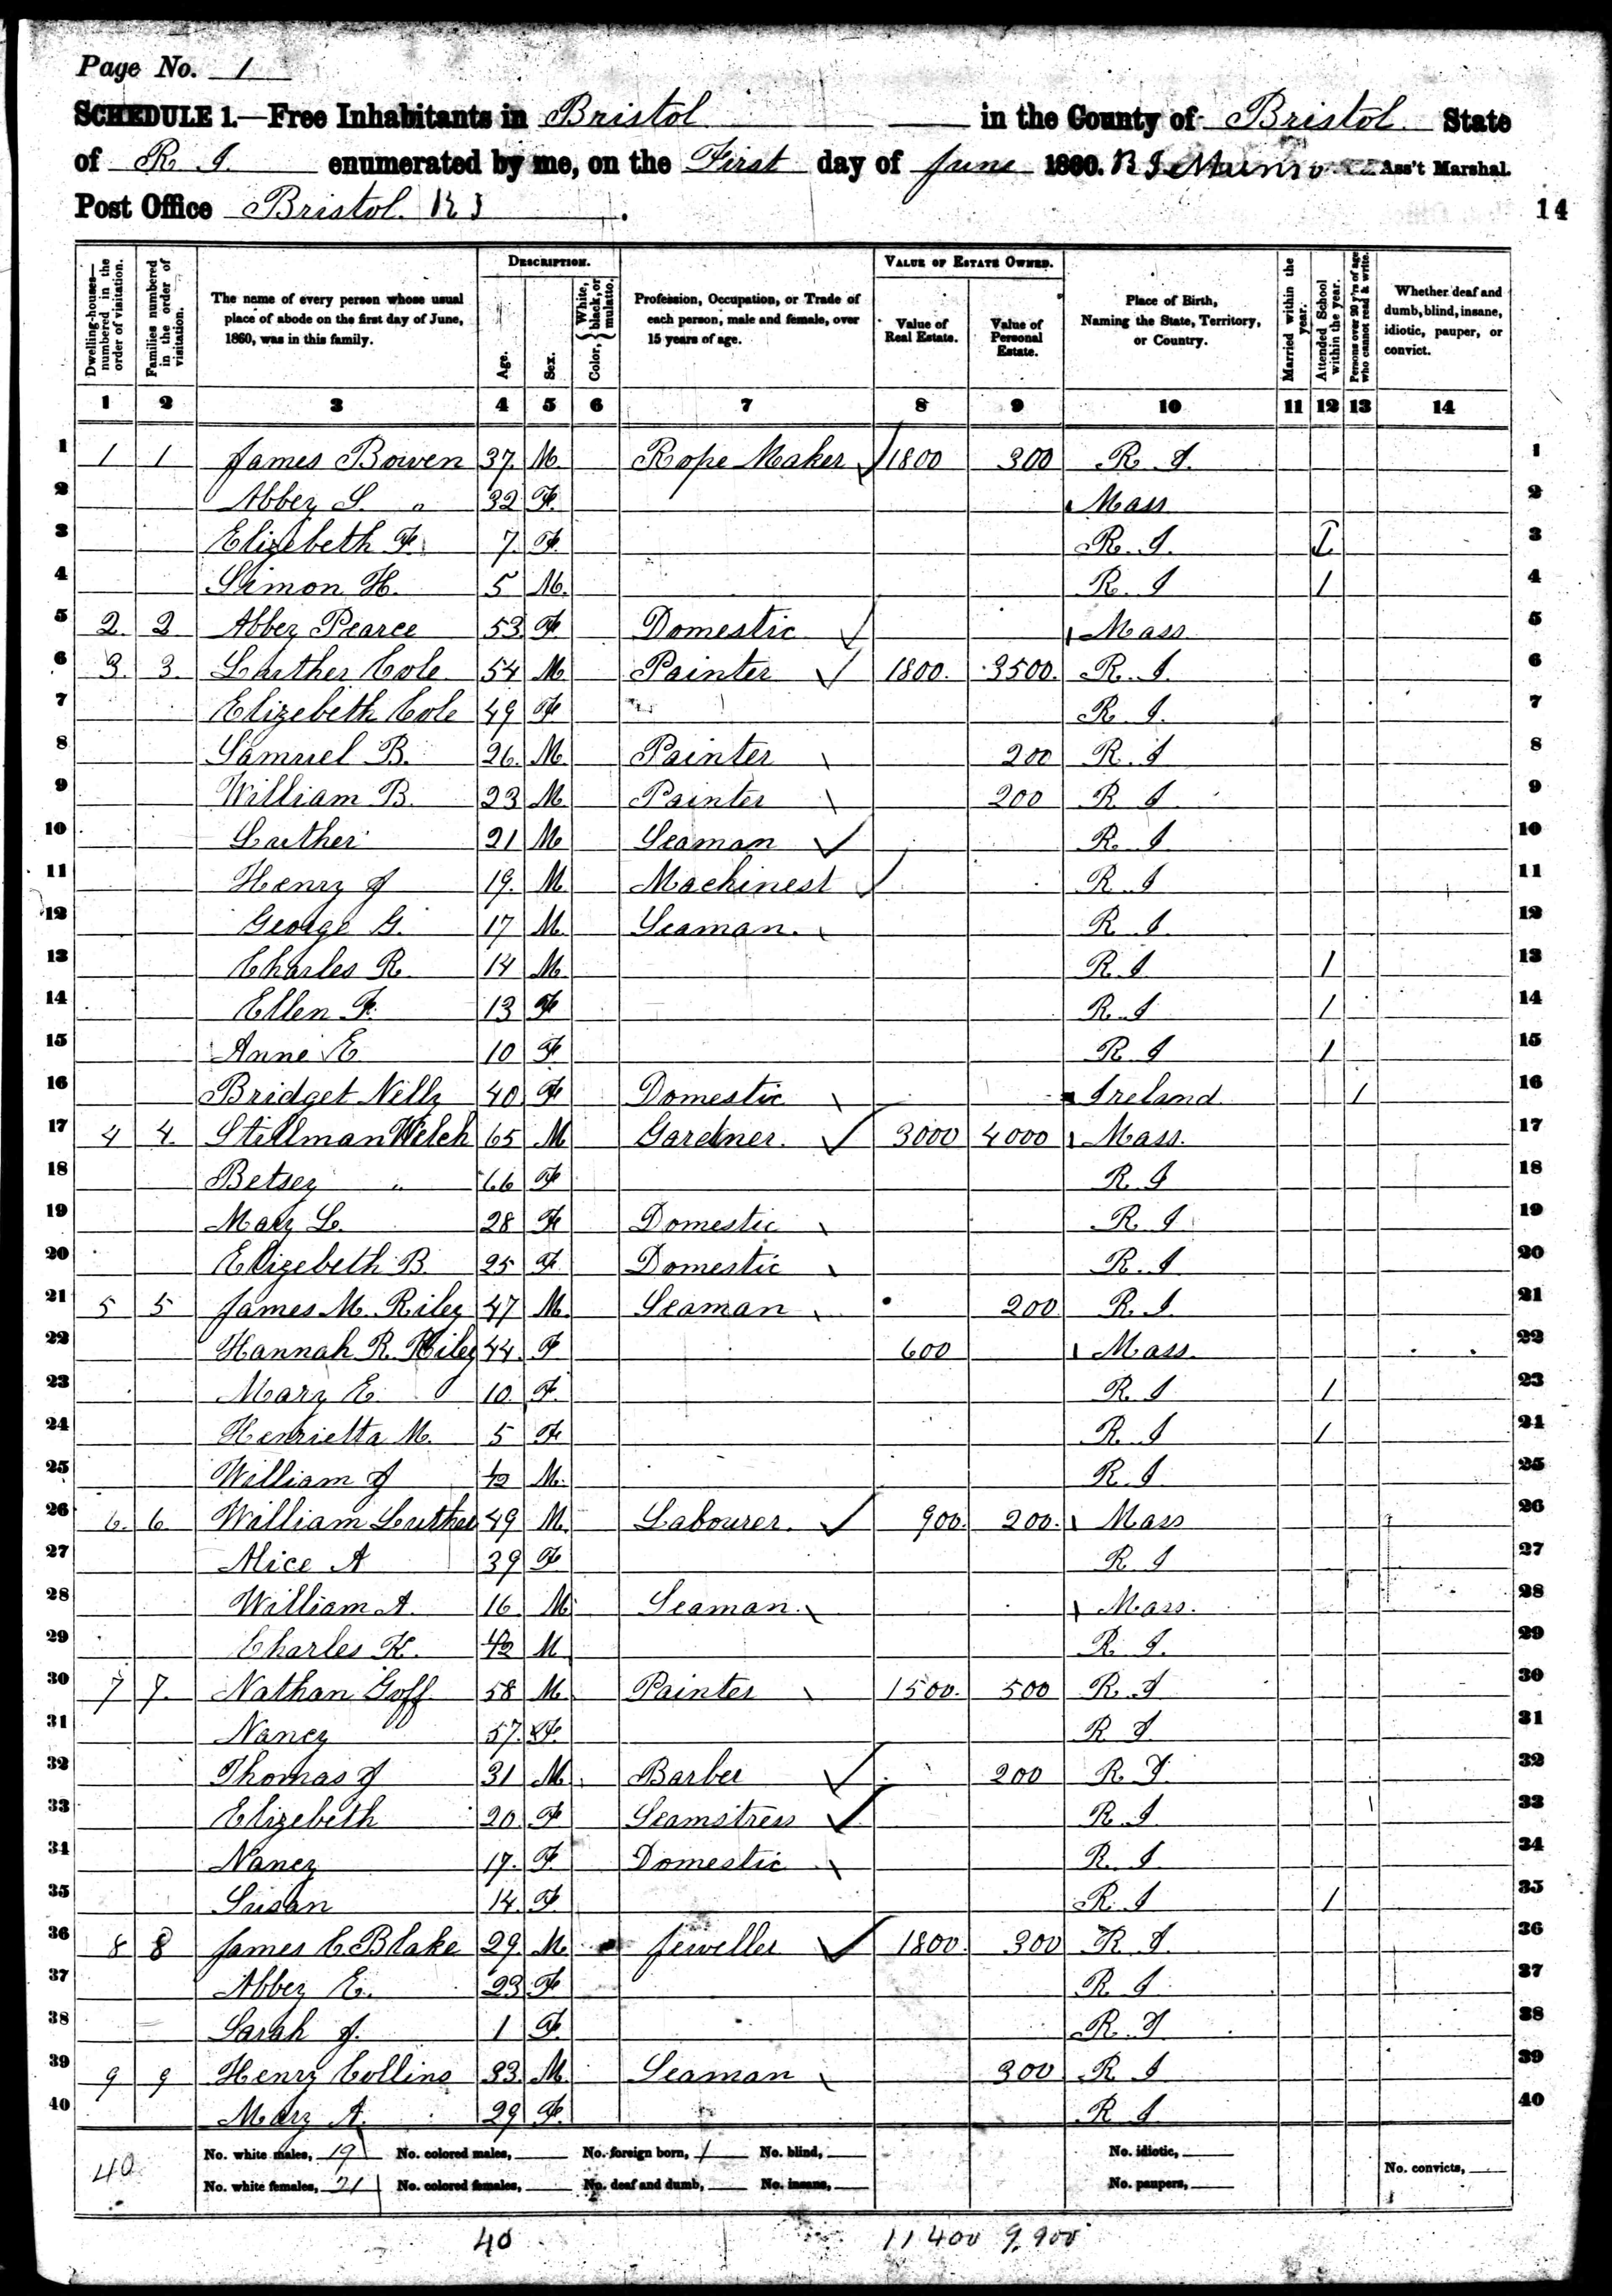 Page No. 1
SCHEDULE 1.—Free Inhabitants in Bristol in the County of Bristol State
of R I enumerated by me, on the First day of June 1860. Ass't Marshal.
Post Office Bristol R I
14
Dwelling-houses—numbered in the order of visitation.
Families numbered in the order of visitation.
The name of every person whose usual place of abode on the first day of June, 1860, was in this family.
DESCRIPTION.
Age.
Sex.
Color, { White, black, or mulatto.
Profession, Occupation, or Trade of each person, male and female, over 15 years of age.
VALUE OF ESTATE OWNED.
Value of Real Estate.
Value of Personal Estate.
Place of Birth, Naming the State, Territory, or Country.
Married within the year.
Attended School within the year.
Persons over 20 y'rs of age who cannot read & write.
Whether deaf and dumb, blind, insane, idiotic, pauper, or convict.
1 2 3 4 5 6 7 8 9 10 11 12 13 14
1 1 1 James Bowen 37 M Rope Maker 1800 300 R. I. 1
2 Abbey S. " 32 F Mass 2
3 Elizebeth F 7 F R. I. 1 3
4 Simon H. 5 M R. I 1 4
5 2 2 Abbey Pearce 53 F Domestic Mass 5
6 3 3 Luther Cole 54 M Painter 1800 3500 R. I. 6
7 Elizebeth Cole 49 F R. I. 7
8 Samuel B. 26 M Painter 200 R. I 8
9 William B. 23 M Painter 200 R I 9
10 Luther 21 M Seaman R. I 10
11 Henry J 19 M Machinest R. I 11
12 George G. 17 M Seaman. R. I 12
13 Charles R. 14 M R. I 1 13
14 Ellen F. 13 F R. I 1 14
15 Anne E 10 F R I 1 15
16 Bridget Nelly 40 F Domestic Ireland 1 16
17 4 4 Stillman Welch 65 M Gardner. 3000 4000 Mass. 17
18 Betsey " 66 F R. I 18
19 Mary L. 28 F Domestic R. I 19
20 Elizebeth B. 25 F Domestic R. I 20
21 5 5 James M. Riley 47 M Seaman 200 R. I 21
22 Hannah R. Riley 44 F 600 Mass 22
23 Mary E. 10 F R. I 1 23
24 Henrietta M. 5 F R. I 1 24
25 William J M R. I 25
26 6 6 William Luther 49 M Labourer. 900 200 Mass 26
27 Alice A 39 F R. I 27
28 William A. 16 M Seaman. Mass. 28
29 Charles H. M R. I. 29
30 7 7 Nathan Goff 58 M Painter 1500 500 R. I 30
31 Nancy 57 F R I 31
32 Thomas J 31 M Barber 200 R. I. 32
33 Elizebeth 20 F Seamstress R. I 1 33
34 Nancy 17 F Domestic R. I 34
35 Susan 14 F R. I 1 35
36 8 8 James C Blake 29 M Jeweller 1800 300 R. I. 36
37 Abbey E. 23 F R. I 37
38 Sarah J. 1 F R. I 38
39 9 9 Henry Collins 33 M Seaman 300 R. I 39
40 Mary A. 29 F R I 40
40 No. white males, 19 No. colored males, No. foreign born, 1 No. blind, No. idiotic,
No. white females, 21 No. colored females, No. deaf and dumb, No. insane, No. paupers, No. convicts,
40 11400 9,900